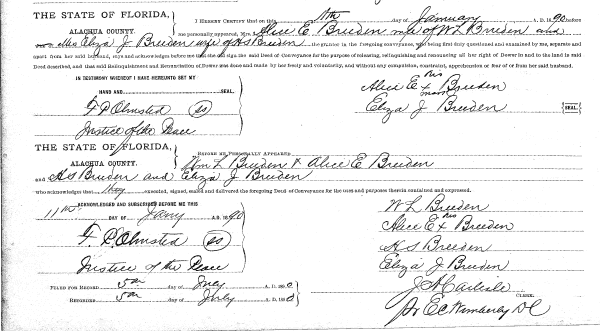 THE STATE OF FLORIDA,
ALACHUA COUNTY.
I HEREBY CERTIFY that on this 11th day of January A. D. 1890 before
me personally appeared, Mrs. Alice E Breeden, wife of W L Breeden and
Mrs Eliza J Breeden wife of H S Breeden, the grantor in the foregoing conveyance, who being first duly questioned and examined by me, separate and
apart from her said husband, says and acknowledges before me that she did sign the said Deed of Conveyance for the purpose of releasing, relinquishing and renouncing all her right of Dower in and to the land in said
Deed described, and that said Relinquishment and Renunciation of Dower was done and made by her freely and voluntarily, and without any compulsion, constraint, apprehension or fear of or from her said husband.
IN TESTIMONY WHEREOF I HAVE HEREUNTO SET MY
HAND AND SEAL.
F. P. Olmsted
Justice of the Peace
his
Alice E x Breeden
mark
Eliza J Breeden [SEAL]
THE STATE OF FLORIDA,
ALACHUA COUNTY.
BEFORE ME PERSONALLY APPEARED
Wm L Breeden & Alice E Breeden
and H S Breeden and Eliza J Breeden
who acknowledges that they executed, signed, sealed and delivered the foregoing Deed of Conveyance for the uses and purposes therein contained and expressed.
ACKNOWLEDGED AND SUBSCRIBED BEFORE ME THIS
11th DAY OF Jany A. D. 1890
F. P. Olmsted
Justice of the Peace
W L Breeden
his
Alice E x Breeden
H S Breeden
Eliza J Breeden
FILED FOR RECORD 5th day of July A. D. 1890
RECORDED 5th day of July A. D. 1890
J A Carlisle
CLERK.
E C Wimberly D C